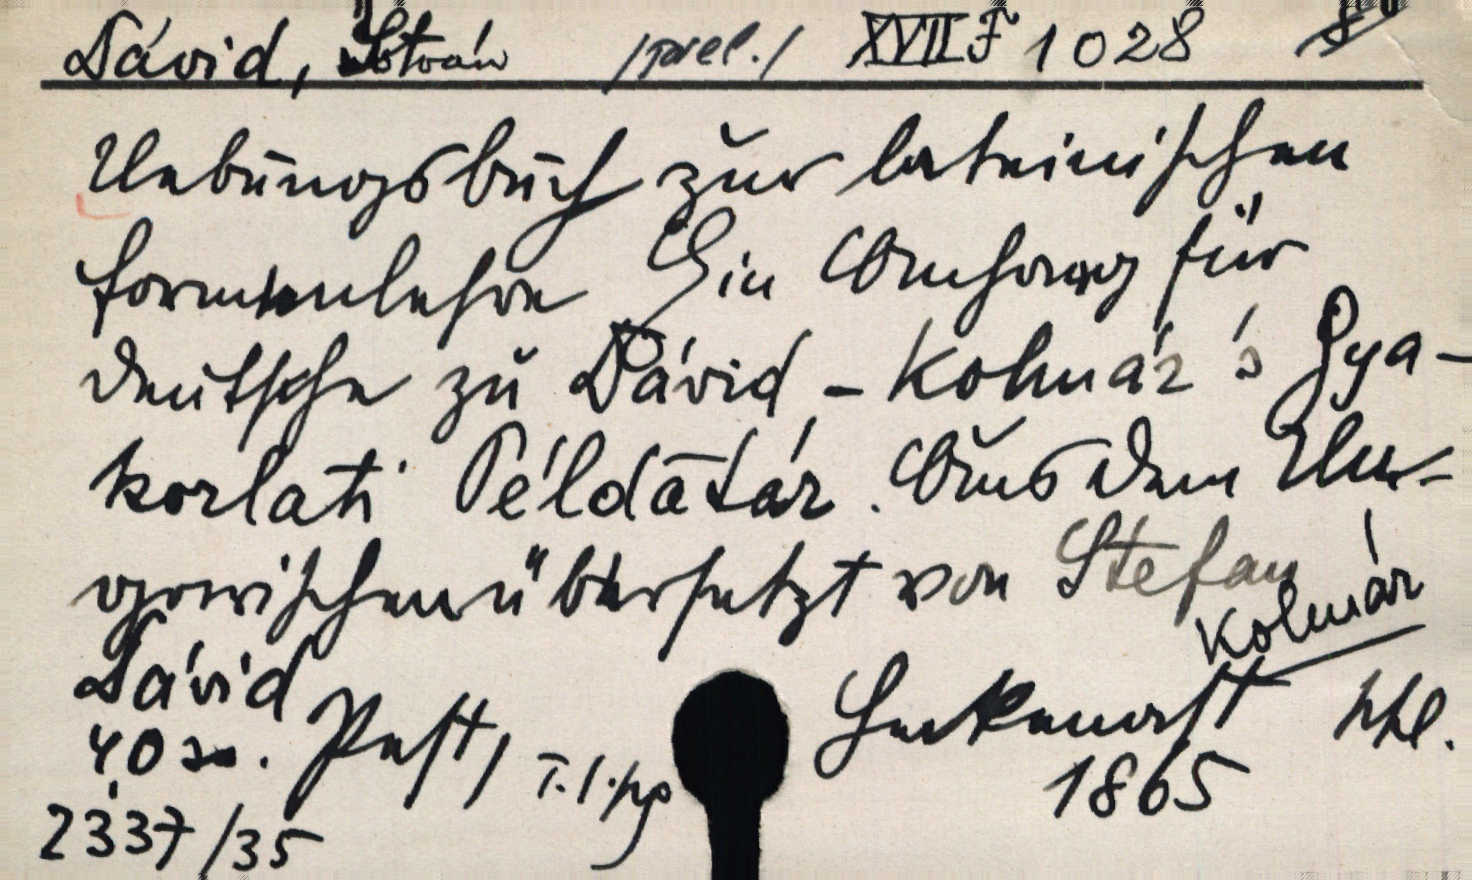 Dávid, István /prel./ XVII F 1028
Uebungsbuch zur lateinischen
formenlehre Ein Anhang für
deutsche zu Dávid, - Kolmár's Gya-
korlati Példatár. Aus dem Un-
garischen übersetzt von Stefan
Kolmár
Dávid
40 Pest, Heckenast
1865
2337/35